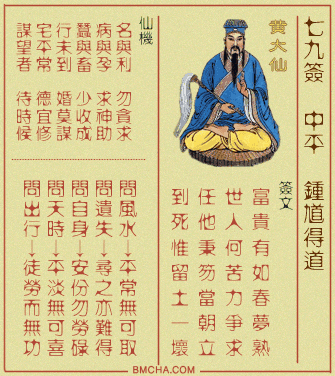 七九簽 中平 鍾馗得道
黃大仙
簽文
富貴有如春夢熟
世人何苦力爭求
任他秉笏當朝立
到死惟留土一壞
仙機
名與利 勿貪求
病與孕 求神助
蠶與畜 少收成
行未到 婚莫謀
宅平常 德宜修
謀望者 待時候
問風水→平常無可取
問遺失→尋之亦難得
問自身→安份勿勞碌
問天時→平淡無可喜
問出行→徒勞而無功
BMCHA.COM